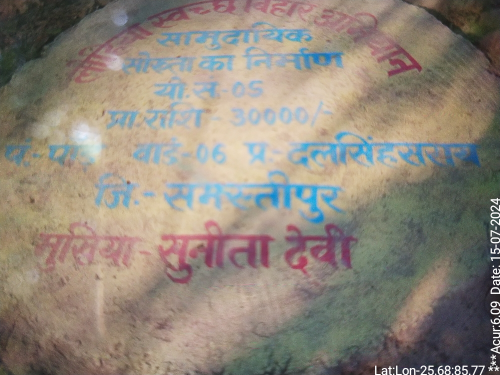 स्वच्छ बिहार अभियान
सामुदायिक
सोख्ता का निर्माण
यो.सं-05
प्रा.राशि - 30000/-
पं.- वार्ड-06 प्र.- दलसिंहसराय
जि.- समस्तीपुर
मुखिया - सुनीता देवी
Lat:Lon-25,68:85,77
***Acur:6.09 Date: 15-07-2024